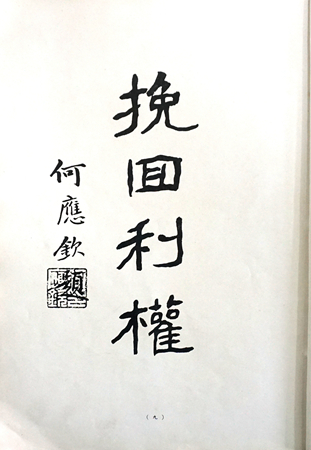 挽回利權
何應欽
（九）